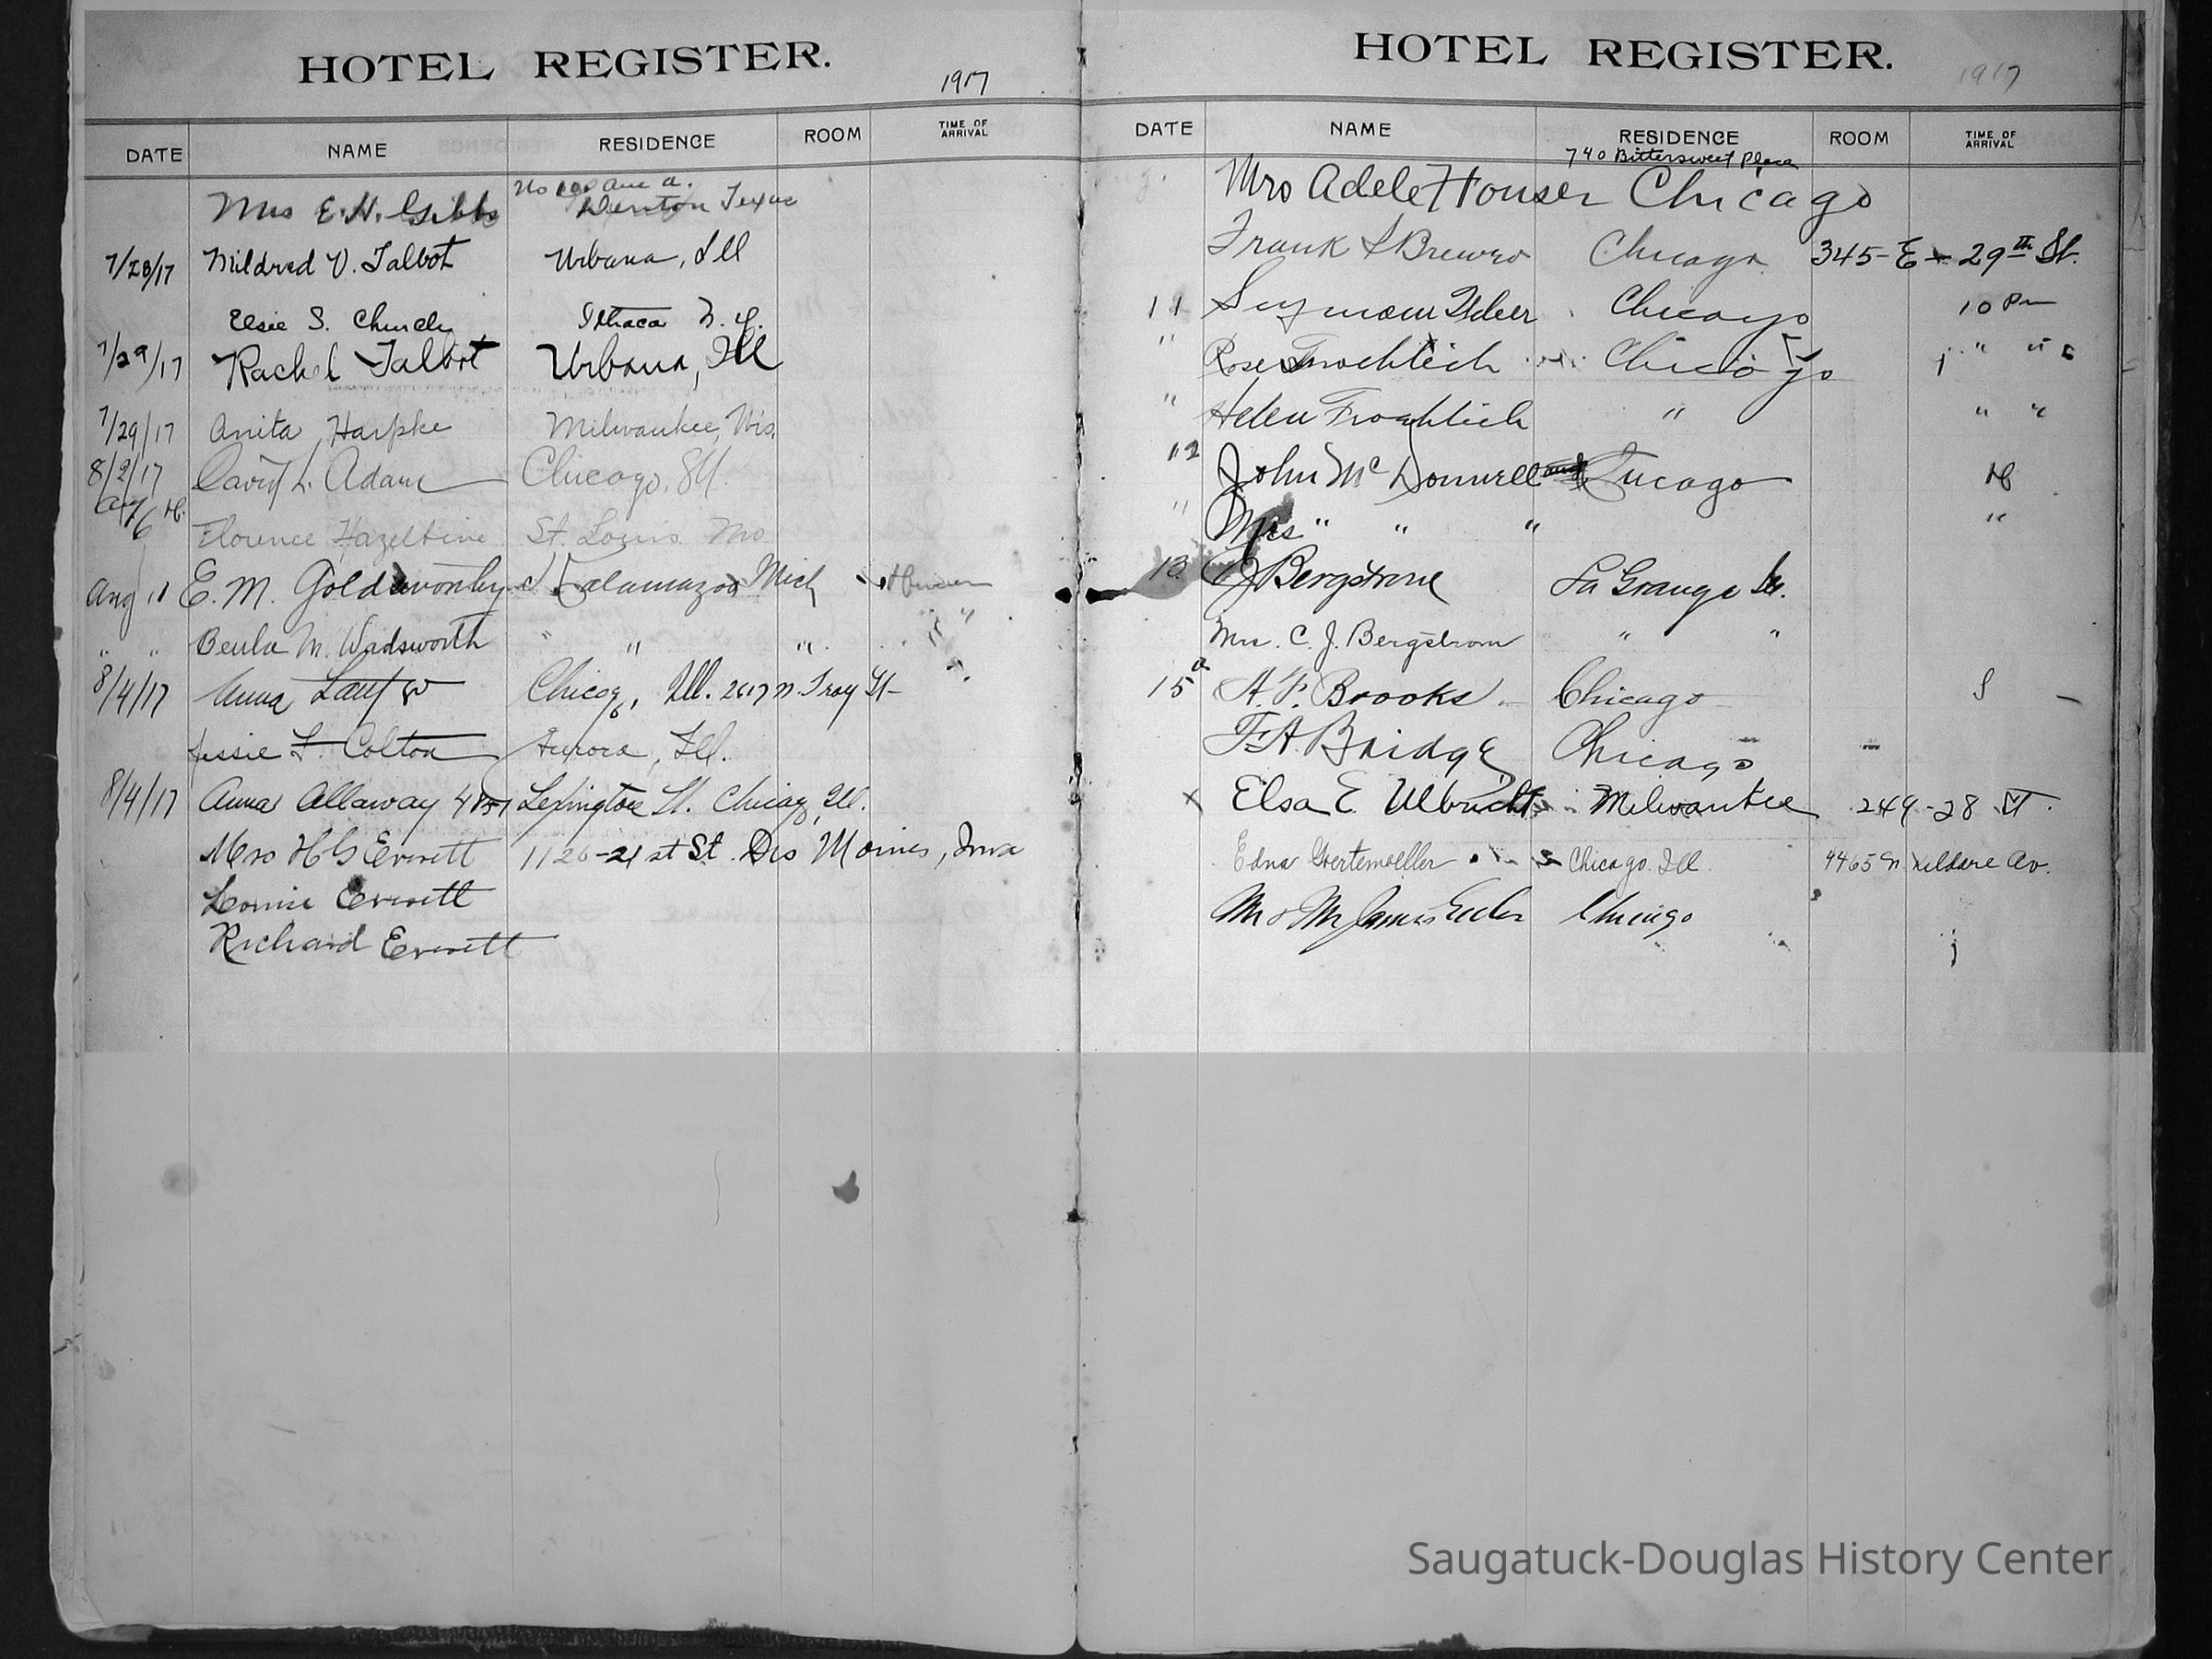 HOTEL REGISTER.
1917
DATE NAME RESIDENCE ROOM TIME OF ARRIVAL
Mrs E. H. Gibbs Ave a. Denton Texas
7/28/17 Mildred V. Talbot Urbana, Ill
Elsie S. Ithaca N.Y.
7/29/17 Rachel Talbot Urbana, Ill
7/29/17 Anita Harpke Milwaukee, Wis.
8/2/17 David L. Adam Chicago, Ill.
Aug 6 Florence Hazeltine St. Louis Mo
Aug 11 E. M. Kalamazoo Mich
" " Beula M. Wadsworth " " "
8/4/17 Anna Chicago, Ill. 2617 N. Troy St-
Jessie L. Colton Aurora, Ill.
8/4/17 Anna Allaway Lexington St. Chicag, Ill.
Mrs H G Everett 1126-21st St. Des Moines, Iowa
Everett
Richard Everett
HOTEL REGISTER.
1917
DATE NAME RESIDENCE ROOM TIME OF ARRIVAL
740 Bittersweet Place
Mrs Adele Houser Chicago
Frank Chicago 345-E- 29th St.
11 Seymour Chicago 10 Pm
" Rose Froehlich Chicago " "
" Helen Froehlich " " "
12 John McDonnell Chicago
" Mrs " " " "
13 La Grange Ill.
Mrs. C. J. Bergstrom " "
15 A. F. Brooks Chicago
F. A. Bridge Chicago
x Elsa E. Ulbricht Milwaukee 249-28 St.
Edna Chicago Ill 4465 N Kildare Av.
Mr & Mrs James Chicago
Saugatuck-Douglas History Center